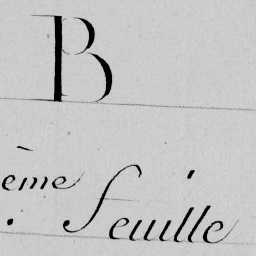 B
ème feuille